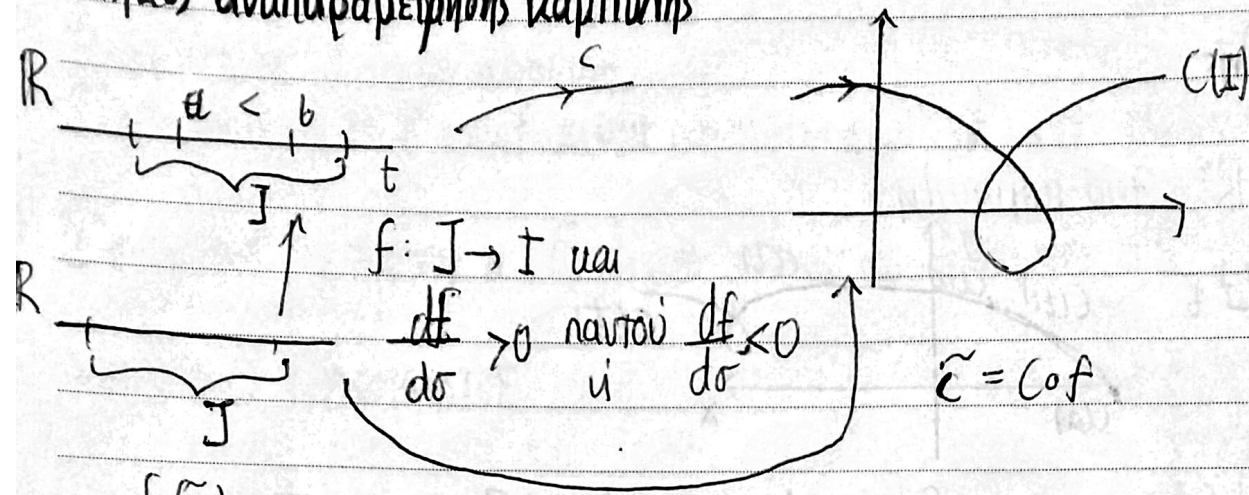 αναπαραμέτρησης καμπύλης
ℝ
a < b
c
C(I)
t
I
f: J → I και
ℝ
df/dσ >0 παντού df/dσ <0
ή
c̃ = C o f
J